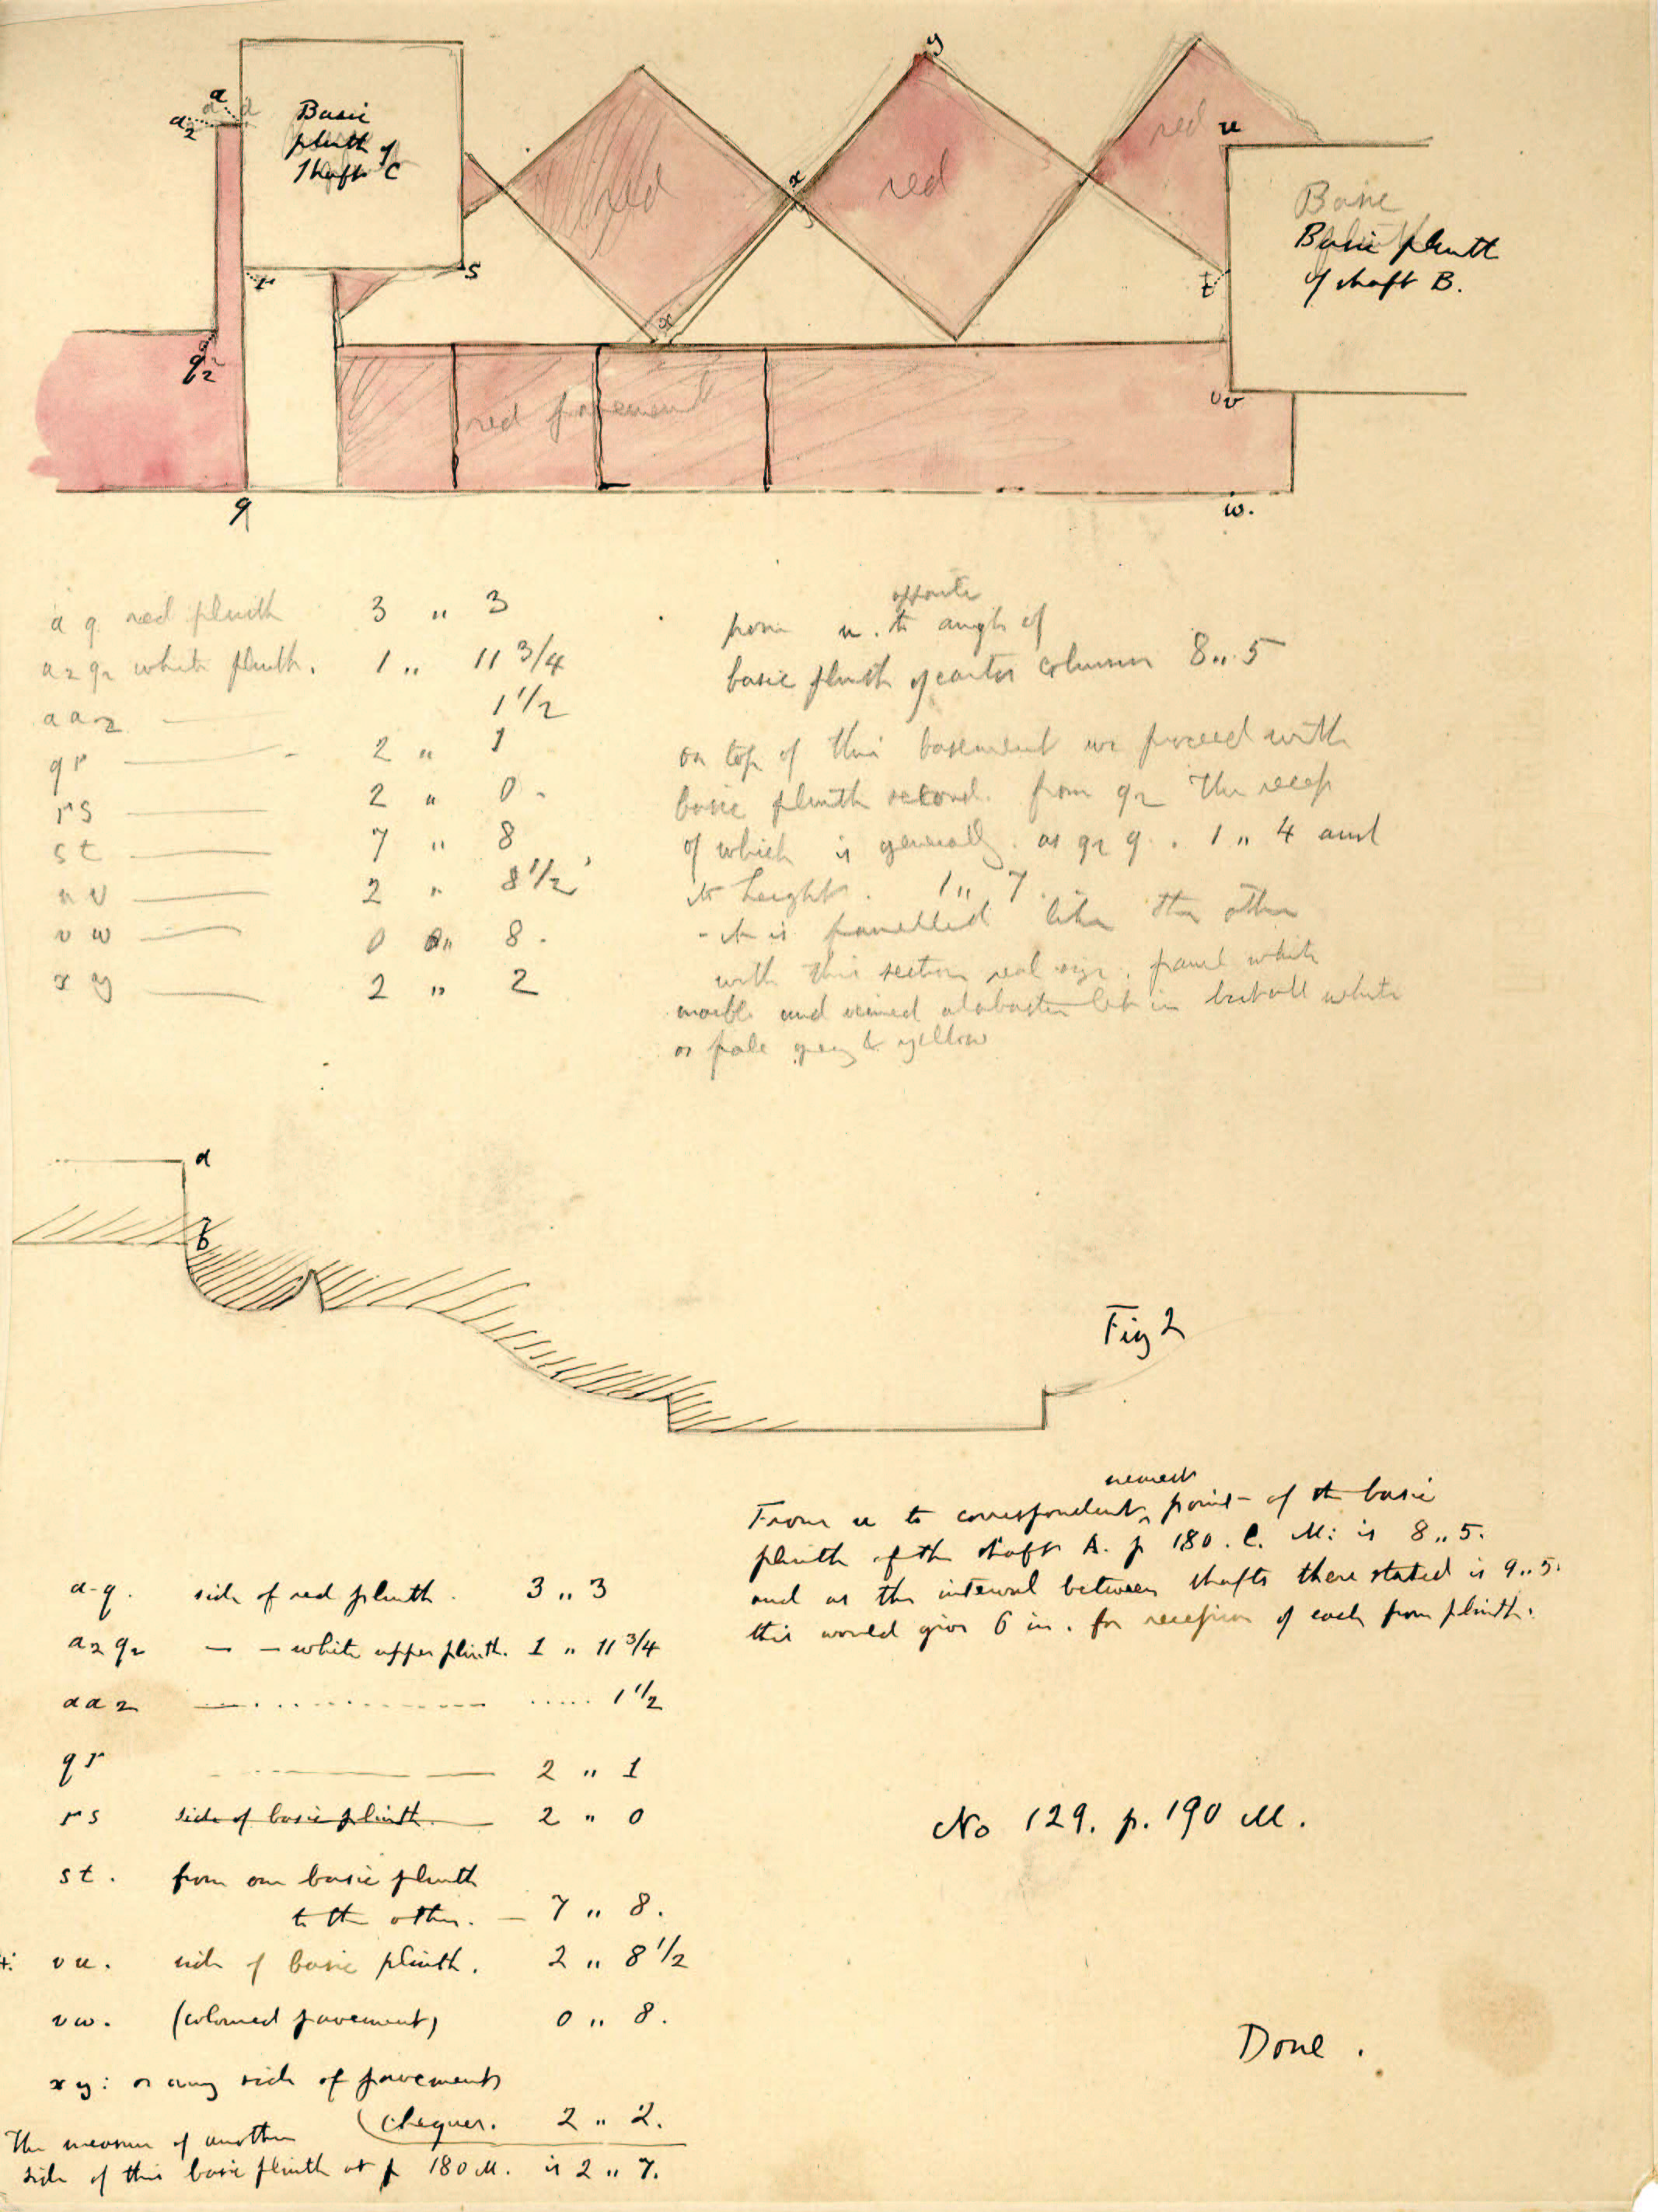 a
a2
Basic
plinth of
shaft C
y
red
u
x
red
red
Base
Basic plinth
of shaft B.
r
s
t
x
q2
red pavement
v
q
w.
a q red plinth 3 „ 3
a2 q2 white plinth. 1 „ 11 3/4
a a2 1 1/2
q r 2 „ 1
r s 2 „ 0
s t 7 „ 8
u v 2 „ 8 1/2
v w 0 „ 8.
x y 2 „ 2
opposite
from u. to angle of
basic plinth of center column 8„5
on top of this basement we proceed with
basic plinth second. from q2 The recess
of which is generally. as q2 q. 1„4 and
its height. 1„7.
- it is panelled like the other
with this section real size. panel white
marble and veined alabaster let in but all white
or pale grey & yellow
a
b
Fig 2
nearest
From u to correspondent ^ point of the basic
plinth of the shaft A. p 180. C. M: is 8„5.
and as the interval between shafts there stated is 9„5.
this would give 6 in. for recession of each from plinth.
a-q. side of red plinth. 3„3
a2 q2 — — white upper plinth. 1 „ 11 3/4
a a2 1 1/2
q r 2 „ 1
r s side of basic plinth. 2 „ 0
s t. from one basic plinth
to the other. — 7 „ 8.
v u. side of basic plinth. 2 „ 8 1/2
v w. (coloured pavement) 0 „ 8.
x y: or any side of pavement
(chequer. 2 „ 2.
The measure of another
side of this basic plinth at p 180 M. is 2 „ 7.
No 129. p. 190 M.
Done.